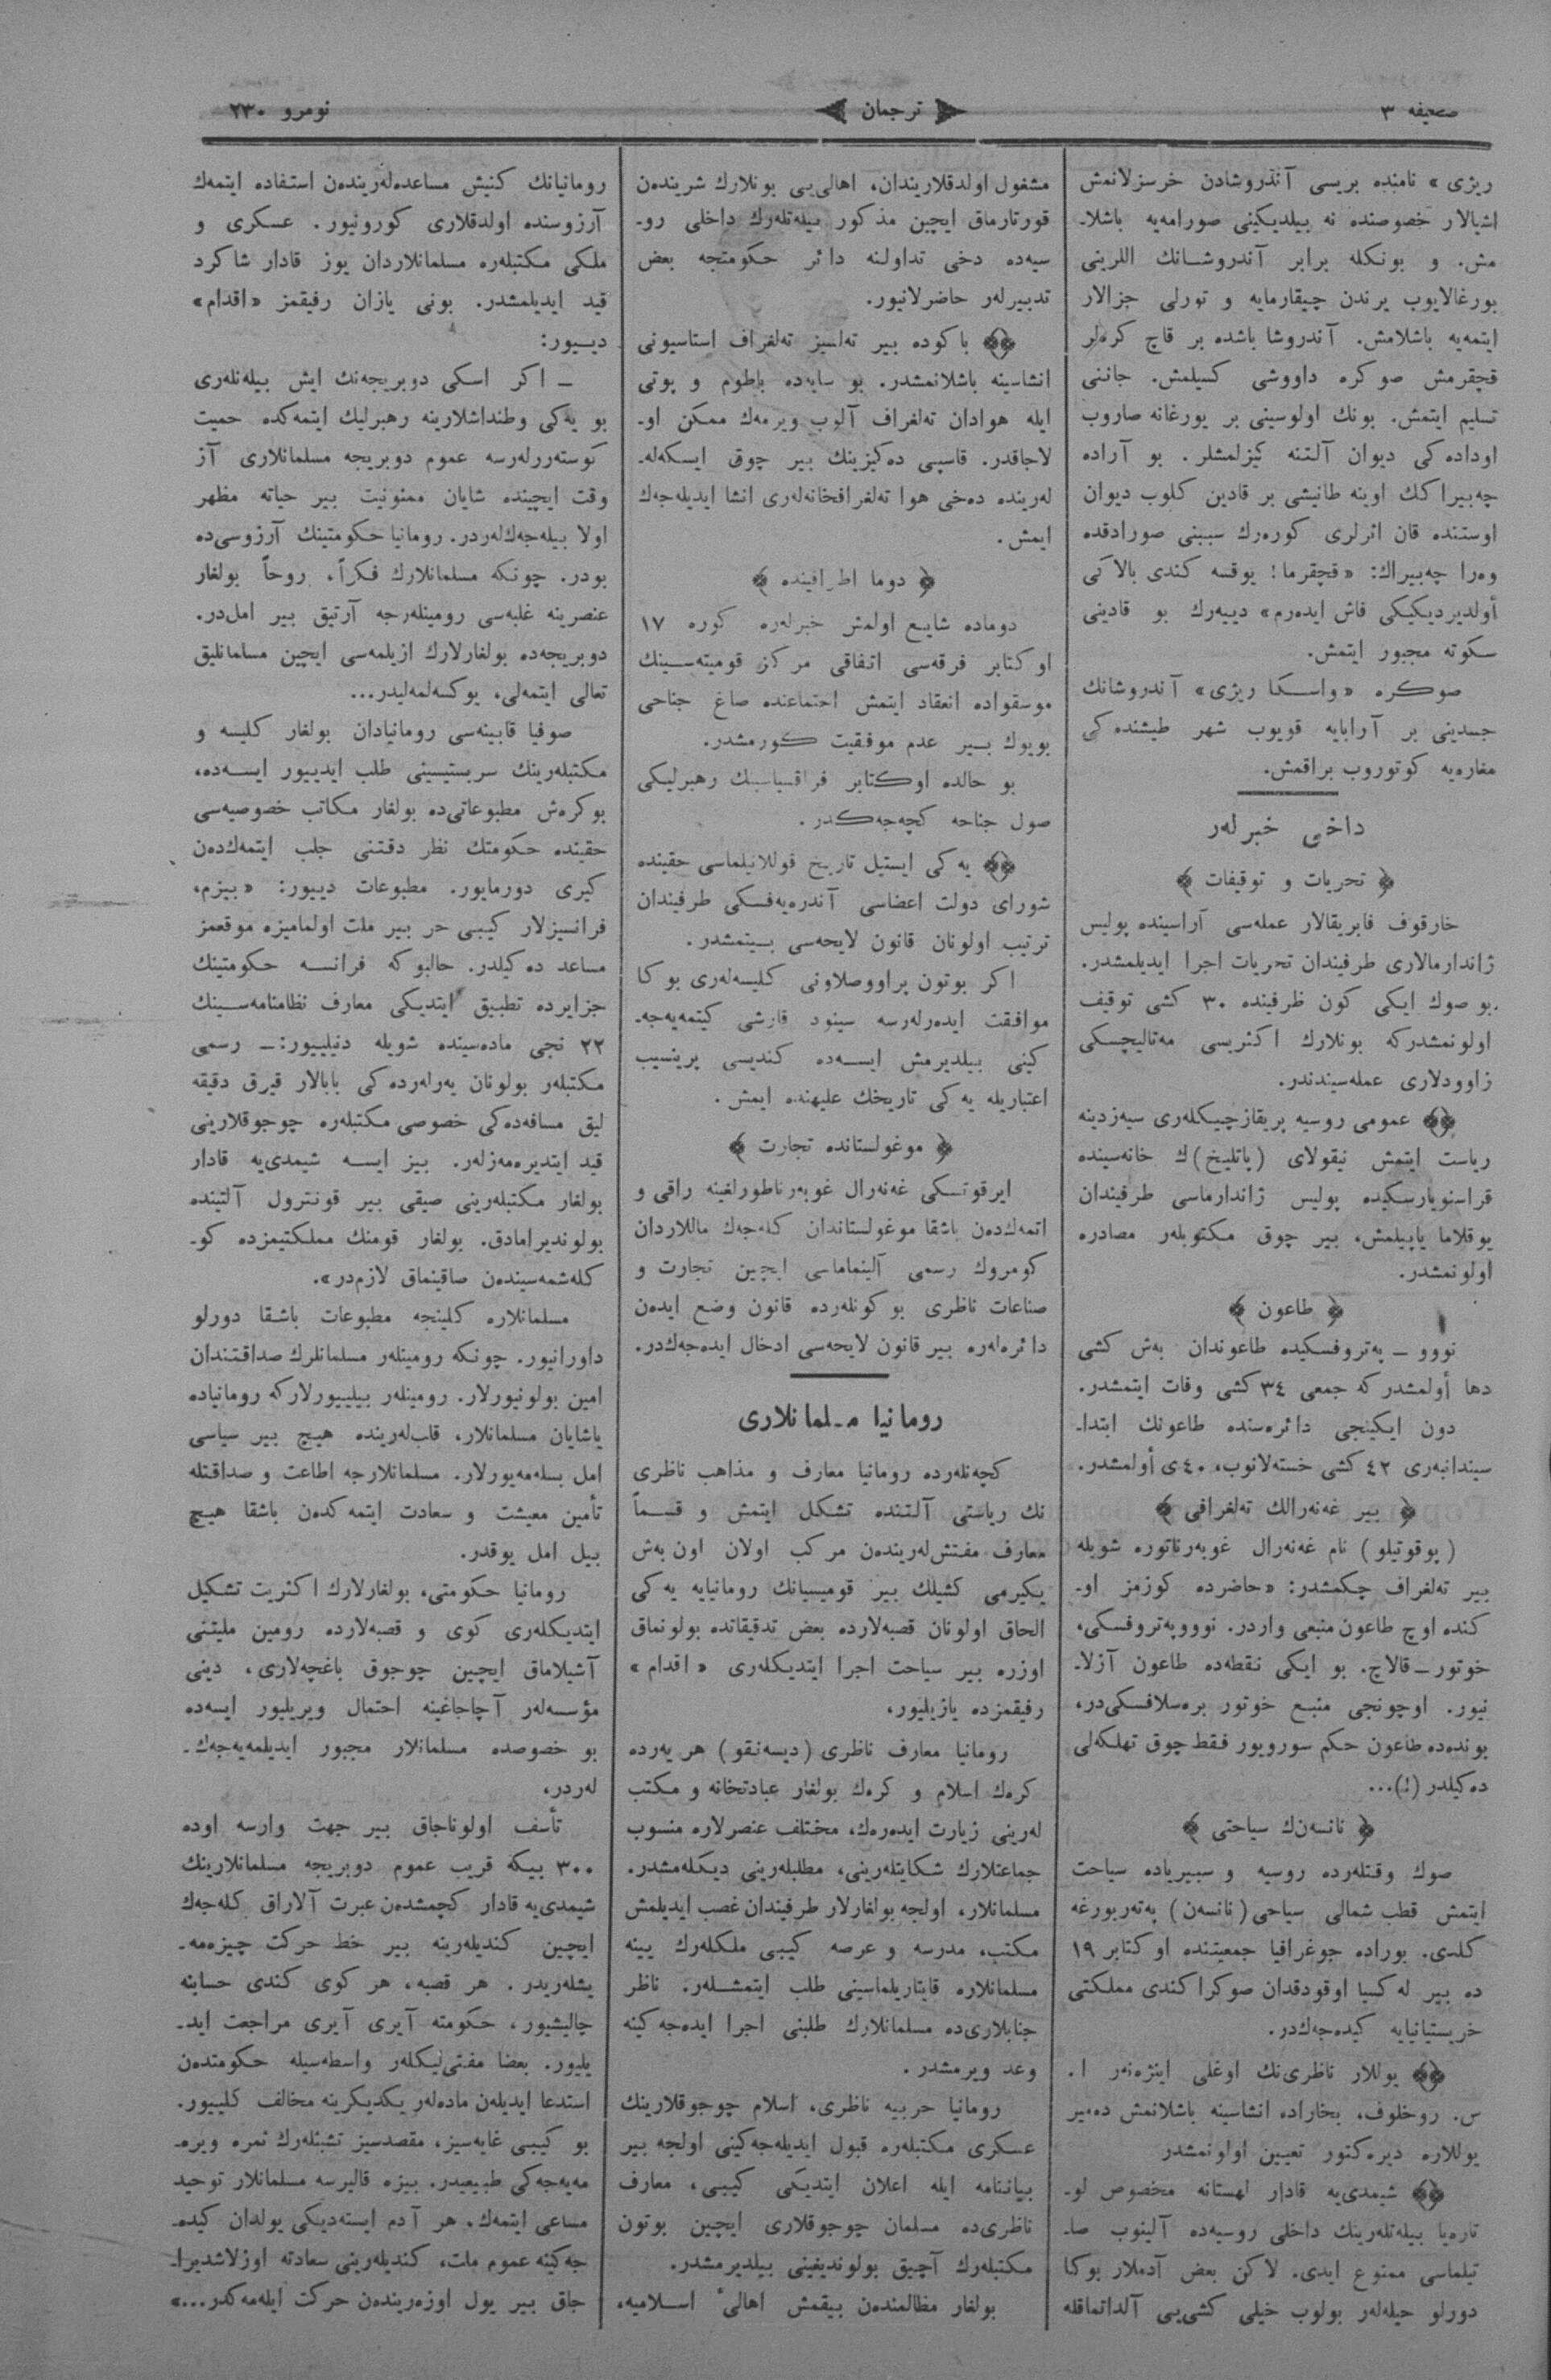 صحیفه ٣
ترجمان
نومرو ٢٣٠
ریژی» نامنده بریسی آندروشادن خرسزلانمش
اشیالار خصوصنده نه بیلدیکینی صورامه‌یه باشلا-
مش. و بونکله برابر آندروشانك اللرینی
بورغالایوب یرندن چیقارمایه و تورلی جزالار
ایتمه‌یه باشلامش. آندروشا باشده بر قاچ کره‌لر
قچقرمش صوکره داووشی کسیلمش. جاننی
تسلیم ایتمش. بونك اولوسینی بر یورغانه صاروب
اوداده‌کی دیوان آلتنه کیزلمشلر. بو آراده
چه‌بیراکك اوینه طانیشی بر قادین کلوب دیوان
اوستنده قان اثرلری کوره‌رك سببنی صورادقده
وه‌را چه‌بیراك: «قچقرما! یوقسه کندی بالاکی
أولدیردیکیکی فاش ایده‌رم» دییه‌رك بو قادینی
سکوته مجبور ایتمش.
صوکره «واسکا ریژی» آندروشانك
جسدینی بر آرابایه قویوب شهر طیشنده‌کی
مغاره‌یه کوتوروب براقمش.
داخلی خبرلەر
﴿ تحریات و توقیفات ﴾
خارقوف فابریقالار عمله‌سی آراسینده پولیس
ژاندارمالاری طرفیندان تحریات اجرا ایدیلمشدر.
بو صوك ایکی کون ظرفینده ٣٠ کشی توقیف
اولونمشدرکه بونلارك اکثریسی مه‌تالیچسکی
زاوودلاری عمله‌سیندندر.
﴿﴾ عمومی روسیه پریقازچیکله‌ری سیه‌زدینه
ریاست ایتمش نیقولای (پاتلیخ)ك خانه‌سینده
قراسنویارسکیده پولیس ژاندارماسی طرفیندان
یوقلاما یاپیلمش، بیر چوق مکتوبلەر مصادره
اولونمشدر.
﴿ طاعون ﴾
نووو – په‌تروفسکیده طاعوندان به‌ش کشی
دها أولمشدرکه جمعی ٣٤ کشی وفات ایتمشدر.
دون ایکینجی دائره‌سنده طاعونك ابتدا-
سیندانبه‌ری ٤٢ کشی خسته‌لانوب، ٤٠ی أولمشدر.
﴿ بیر غه‌نه‌رالك ته‌لغرافی ﴾
(بوقوتیلو) نام غه‌نه‌رال غوبه‌رناتوره شویله
بیر ته‌لغراف چکمشدر: «حاضرده کوزمز او-
کنده اوچ طاعون منبعی واردر. نووویه‌تروفسکی،
خوتور – قالاچ. بو ایکی نقطه‌ده طاعون آزلا-
نیور. اوچونجی منبع خوتور بره‌سلافسکی‌در،
بونده‌ده طاعون حکم سورویور فقط چوق تهلکه‌لی
ده‌کیلدر (!)...
﴿ نانسه‌ن‌ك سیاحتی ﴾
صوك وقتلەرده روسیه و سیبریاده سیاحت
ایتمش قطب شمالی سیاحی (نانسه‌ن) په‌ته‌ربورغه
کلدی. بوراده جوغرافیا جمعیتنده اوکتابر ١٩
ده بیر له‌کسیا اوقودقدان صوکرا کندی مملکتی
خریستیانیایه کیده‌جه‌ك‌در.
﴿﴾ یوللار ناظری‌نك اوغلی اینژه‌نه‌ر ا.
س. روخلوف، بخاراده انشاسینه باشلانمش ده‌میر
یوللاره دیره‌کتور تعیین اولونمشدر
﴿﴾ شیمدی‌یه قادار لهستانه مخصوص لو-
تاره‌یا بیله‌تلەرینك داخلی روسیه‌ده آلینوب صا-
تیلماسی ممنوع ایدی. لاکن بعض آدەملار بوکا
دورلو حیله‌لەر بولوب خیلی کشی‌یی آلداتماقله
مشغول اولدقلاریندان، اهالی‌یی بونلارك شریندەن
قورتارماق ایچین مذکور بیله‌تلەرك داخلی رو-
سیه‌ده دخی تداولنه دائر حکومتجه بعض
تدبیرلەر حاضرلانیور.
﴿﴾ باکوده بیر ته‌لسیز ته‌لغراف استاسیونی
انشاسینه باشلانمشدر. بو سایه‌ده باطوم و پوتی
ایله هوادان ته‌لغراف آلوب ویرمەك ممکن او-
لاجاقدر. قاسپی ده‌کیزینك بیر چوق ایسکه‌له-
لەرینده ده‌خی هوا ته‌لغرافخانه‌لەری انشا ایدیله‌جه‌ك
ایمش.
﴿ دوما اطرافینده ﴾
دوماده شایع اولمش خبرلەره کوره ١٧
اوکتابر فرقه‌سی اتفاقی مرکز قومیته‌سینك
موسقواده انعقاد ایتمش اجتماعنده صاغ جناحی
بویوك بیر عدم موفقیت کورمشدر.
بو حالده اوکتابر فراقسیاسینك رهبرلیکی
صول جناحه کچه‌جه‌کدر.
﴿﴾ یه‌کی ایستیل تاریخ قوللانیلماسی حقینده
شورای دولت اعضاسی آندره‌یه‌فسکی طرفیندان
ترتیب اولونان قانون لایحه‌سی بیتمشدر.
اکر بوتون پراووصلاونی کلیسه‌لەری بوکا
موافقت ایده‌رلەرسه سینود قارشی کیتمه‌یه‌جه-
کینی بیلدیرمش ایسه‌ده کندیسی پرینسیپ
اعتباریله یه‌کی تاریخك علیهنده ایمش.
﴿ موغولستانده تجارت ﴾
ایرقوتسکی غه‌نه‌رال غوبه‌رناطورلغینه راقی و
اتمه‌ك‌دەن باشقا موغولستاندان کله‌جه‌ك ماللاردان
کومروك رسمی آلینماماسی ایچین تجارت و
صناعات ناظری بو کونلەرده قانون وضع ایدەن
دائره‌لەره بیر قانون لایحه‌سی ادخال ایده‌جه‌ك‌در.
رومانیا مسلمانلاری
کچه‌نلەرده رومانیا معارف و مذاهب ناظری
نك ریاستی آلتنده تشکل ایتمش و قسماً
معارف مفتش‌لەریندەن مرکب اولان اون به‌ش
یکیرمی کشیلك بیر قومیسیانك رومانیایه یه‌کی
الحاق اولونان قصبه‌لارده بعض تدقیقاتده بولونماق
اوزره بیر سیاحت اجرا ایتدیکلەری «اقدام»
رفیقمزده یازیلیور،
رومانیا معارف ناظری (دیسه‌نقو) هر یه‌رده
کره‌ك اسلام و کره‌ك بولغار عبادتخانه و مکتب
لەرینی زیارت ایده‌ره‌ك، مختلف عنصرلاره منسوب
جماعتلارك شکایتلەرینی، مطلبلەرینی دیکله‌مشدر.
مسلمانلار، اولجه بولغارلار طرفیندان غصب ایدیلمش
مکتب، مدرسه و عرصه کیبی ملکلەرك یینه
مسلمانلاره قایتاریلماسینی طلب ایتمشلەر. ناظر
جنابلاری‌ده مسلمانلارك طلبنی اجرا ایده‌جه‌کینه
وعد ویرمشدر.
رومانیا حربیه ناظری، اسلام چوجوقلارینك
عسکری مکتبلەره قبول ایدیله‌جه‌کینی اولجه بیر
بیاننامه ایله اعلان ایتدیکی کیبی، معارف
ناظری‌ده مسلمان چوجوقلاری ایچین بوتون
مکتبلەرك آچیق بولوندیغینی بیلدیرمشدر.
بولغار مظالمندەن بیقمش اهالیٔ اسلامیه،
رومانیانك کنیش مساعده‌لەریندەن استفاده ایتمه‌ك
آرزوسنده اولدقلاری کورونیور. عسکری و
ملکی مکتبلەره مسلمانلاردان یوز قادار شاکرد
قید ایدیلمشدر. بونی یازان رفیقمز «اقدام»
دییور:
– اکر اسکی دوبریجه‌نك ایش بیله‌نلەری
بو یه‌کی وطنداشلارینه رهبرلیك ایتمه‌کده حمیت
کوسته‌ررلەرسه عموم دوبریجه مسلمانلاری آز
وقت ایچینده شایان ممنونیت بیر حیاته مظهر
اولا بیله‌جه‌ك‌لەردر. رومانیا حکومتینك آرزوسی‌ده
بودر. چونکه مسلمانلارك فکراً، روحاً بولغار
عنصرینه غلبه‌سی رومینلەرجه آرتیق بیر امل‌در.
دوبریجه‌ده بولغارلارك ازیلمه‌سی ایچین مسلمانلیق
تعالی ایتمه‌لی، یوکسه‌لمه‌لیدر...
صوفیا قابینه‌سی رومانیادان بولغار کلیسه و
مکتبلەرینك سربستیسینی طلب ایدییور ایسه‌ده،
بوکره‌ش مطبوعاتی‌ده بولغار مکاتب خصوصیه‌سی
حقینده حکومتك نظر دقتنی جلب ایتمه‌ك‌دەن
کیری دورمایور. مطبوعات دییور: «بیزم،
فرانسیزلار کیبی حر بیر ملت اولمامیزه موقعمز
مساعد ده‌کیلدر. حالبوکه فرانسه حکومتینك
جزایرده تطبیق ایتدیکی معارف نظامنامه‌سینك
٢٢ نجی ماده‌سینده شویله دنیلییور:– رسمی
مکتبلەر بولونان یه‌رلەرده‌کی بابالار قیرق دقیقه
لیق مسافه‌ده‌کی خصوصی مکتبلەره چوجوقلارینی
قید ایتدیره‌مه‌زلەر. بیز ایسه شیمدی‌یه قادار
بولغار مکتبلەرینی صیقی بیر قونترول آلتینده
بولوندیرامادق. بولغار قومنك مملکتیمزده کو-
کله‌شمه‌سیندەن صاقینماق لازم‌در».
مسلمانلاره کلینجه مطبوعات باشقا دورلو
داورانیور. چونکه رومینلەر مسلمانلرك صداقتندان
امین بولونیورلار. رومینلەر بیلییورلارکه رومانیاده
یاشایان مسلمانلار، قلب‌لەرینده هیچ بیر سیاسی
امل بسله‌مه‌یورلار. مسلمانلارجه اطاعت و صداقتله
تأمین معیشت و سعادت ایتمه‌کدەن باشقا هیچ
بیل امل یوقدر.
رومانیا حکومتی، بولغارلارك اکثریت تشکیل
ایتدیکلەری کوی و قصبه‌لارده رومین ملیتنی
آشیلاماق ایچین چوجوق باغچه‌لاری، دینی
مؤسسه‌لەر آچاجاغینه احتمال ویریلیور ایسه‌ده
بو خصوصده مسلمانلار مجبور ایدیلمه‌یه‌جه‌ك-
لەردر،
تأسف اولوناجاق بیر جهت وارسه اوده
٣٠٠ بیکه قریب عموم دوبریجه مسلمانلارینك
شیمدی‌یه قادار کچمشدەن عبرت آلاراق کله‌جه‌ك
ایچین کندیلەرینه بیر خط حرکت چیزه‌مه-
یشلەریدر. هر قصبه، هر کوی کندی حسابنه
چالیشیور، حکومته آیری آیری مراجعت اید-
یلیور. بعضا مفتی‌لیکلەر واسطه‌سیله حکومتدەن
استدعا ایدیلەن ماده‌لەر یکدیکرینه مخالف کلییور.
بو کیبی غایه‌سیز، مقصدسیز تشبثلەرك ثمره ویره-
مه‌یه‌جه‌کی طبیعیدر. بیزه قالیرسه مسلمانلار توحید
مساعی ایتمه‌ك، هر آدم ایسته‌دیکی یولدان کیده-
جه‌کینه عموم ملت، کندیلەرینی سعادته اوزلاشدیرا-
جاق بیر یول اوزه‌ریندەن حرکت ایله‌مه‌کدر...»